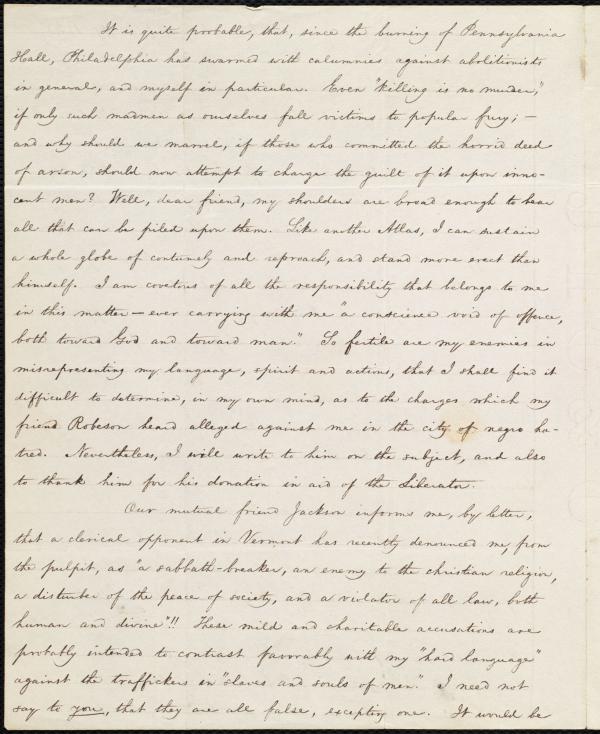 It is quite probable, that, since the burning of Pennsylvania
Hall, Philadelphia has swarmed with calumnies against abolitionists
in general, and myself in particular. Even "killing is no murder,"
if only such madmen as ourselves fall victims to popular fury; —
and why should we marvel, if those who committed the horrid deed
of arson, should now attempt to charge the guilt of it upon inno-
cent men? Well, dear friend, my shoulders are broad enough to bear
all that can be piled upon them. Like another Atlas, I can sustain
a whole globe of contumely and reproach, and stand more erect than
himself. I am covetous of all the responsibility that belongs to me
in this matter — ever carrying with me "a conscience void of offence,
both toward God and toward man." So fertile are my enemies in
misrepresenting my language, spirit and actions, that I shall find it
difficult to determine, in my own mind, as to the charges which my
friend Robeson heard alleged against me in the city of negro ha-
tred. Nevertheless, I will write to him on the subject, and also
to thank him for his donation in aid of the Liberator.
Our mutual friend Jackson informs me, by letter,
that a clerical opponent in Vermont has recently denounced me, from
the pulpit, as "a sabbath-breaker, an enemy to the christian religion,
a disturber of the peace of society, and a violator of all law, both
human and divine"!! These mild and charitable accusations are
probably intended to contrast favorably with my "hard language"
against the traffickers in "slaves and souls of men." I need not
say to you, that they are all false, excepting one. It would be